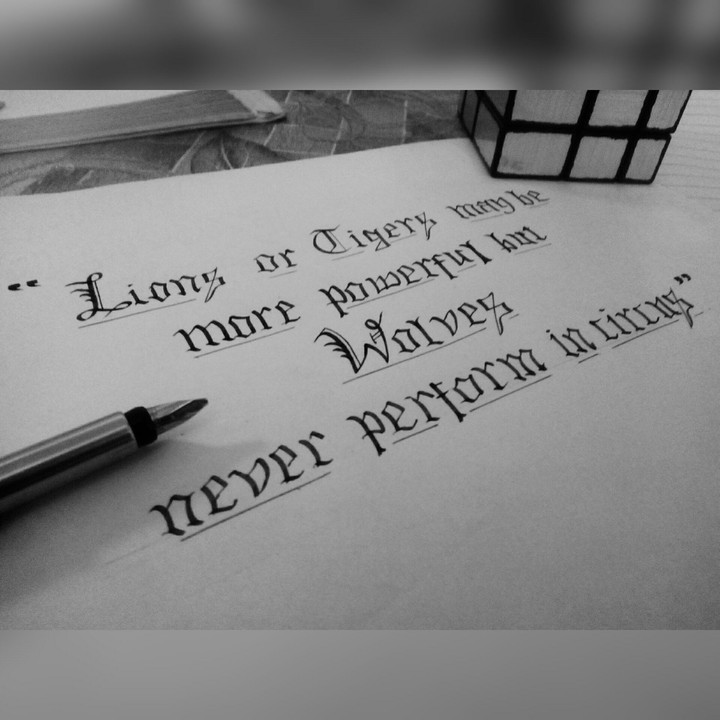 “ Lions or Tigers may be
more powerful but
Wolves
never perform in circus”